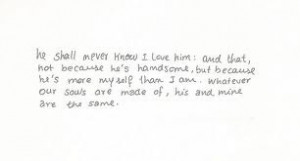 he shall never know I love him: and that,
not because he's handsome, but because
he's more myself than I am. Whatever
our souls are made of, his and mine
are the same.